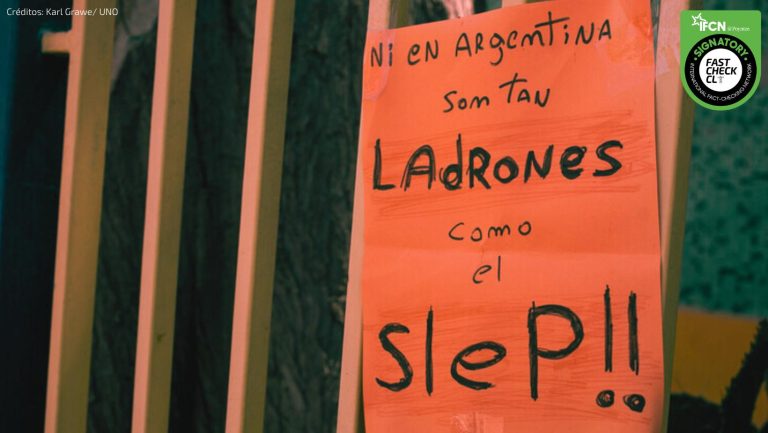 Créditos: Karl Grawe/ UNO
Ni en Argentina
son tan
LAdRONES
como
el
SleP!!
IFCN @Poynter.
SIGNATORY
FAST
CHECK
CL
INTERNATIONAL FACT-CHECKING NETWORK